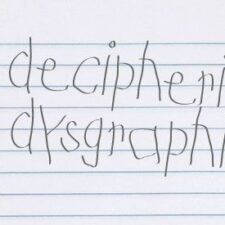 decipheri
dysgraphi